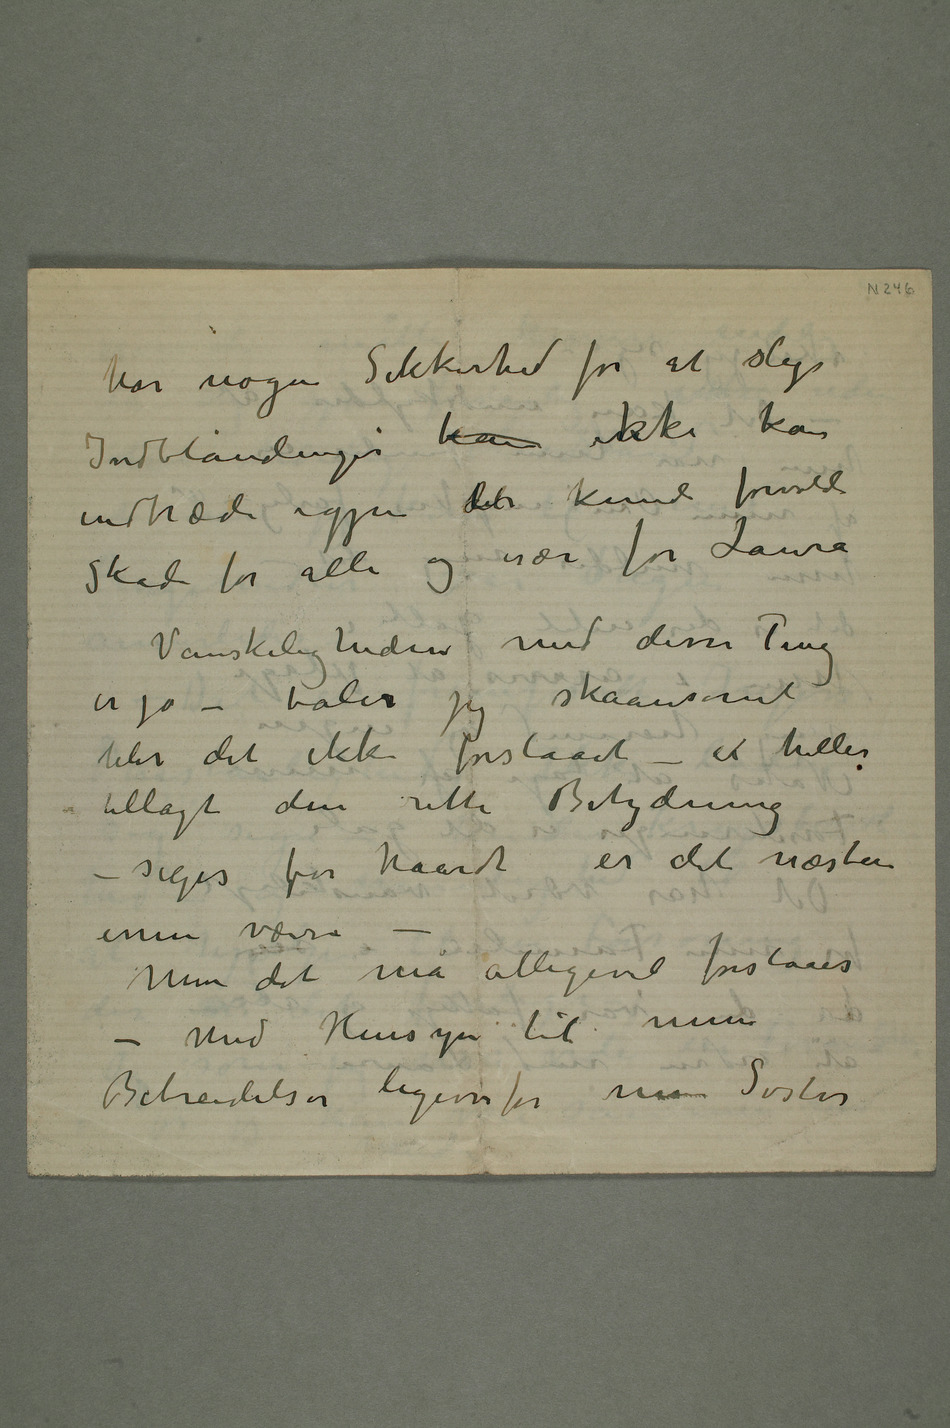 N 246
har nogen Sikkerhed for at slige
Indblandinger kan ikke kan
indtræde igjen det kunde forvolde
Skade for alle og især for Laura
Vanskeligheden med disse Ting
er jo – taler jeg skaansomt
blir det ikke forstaaet – ei heller
tillagt den rette Betydning
– siges for haardt er det næsten
ennu værre –
Men det må alligevel forstaaes
– Med Hensyn til mine
Bebreidelser ligeoverfor min Søster